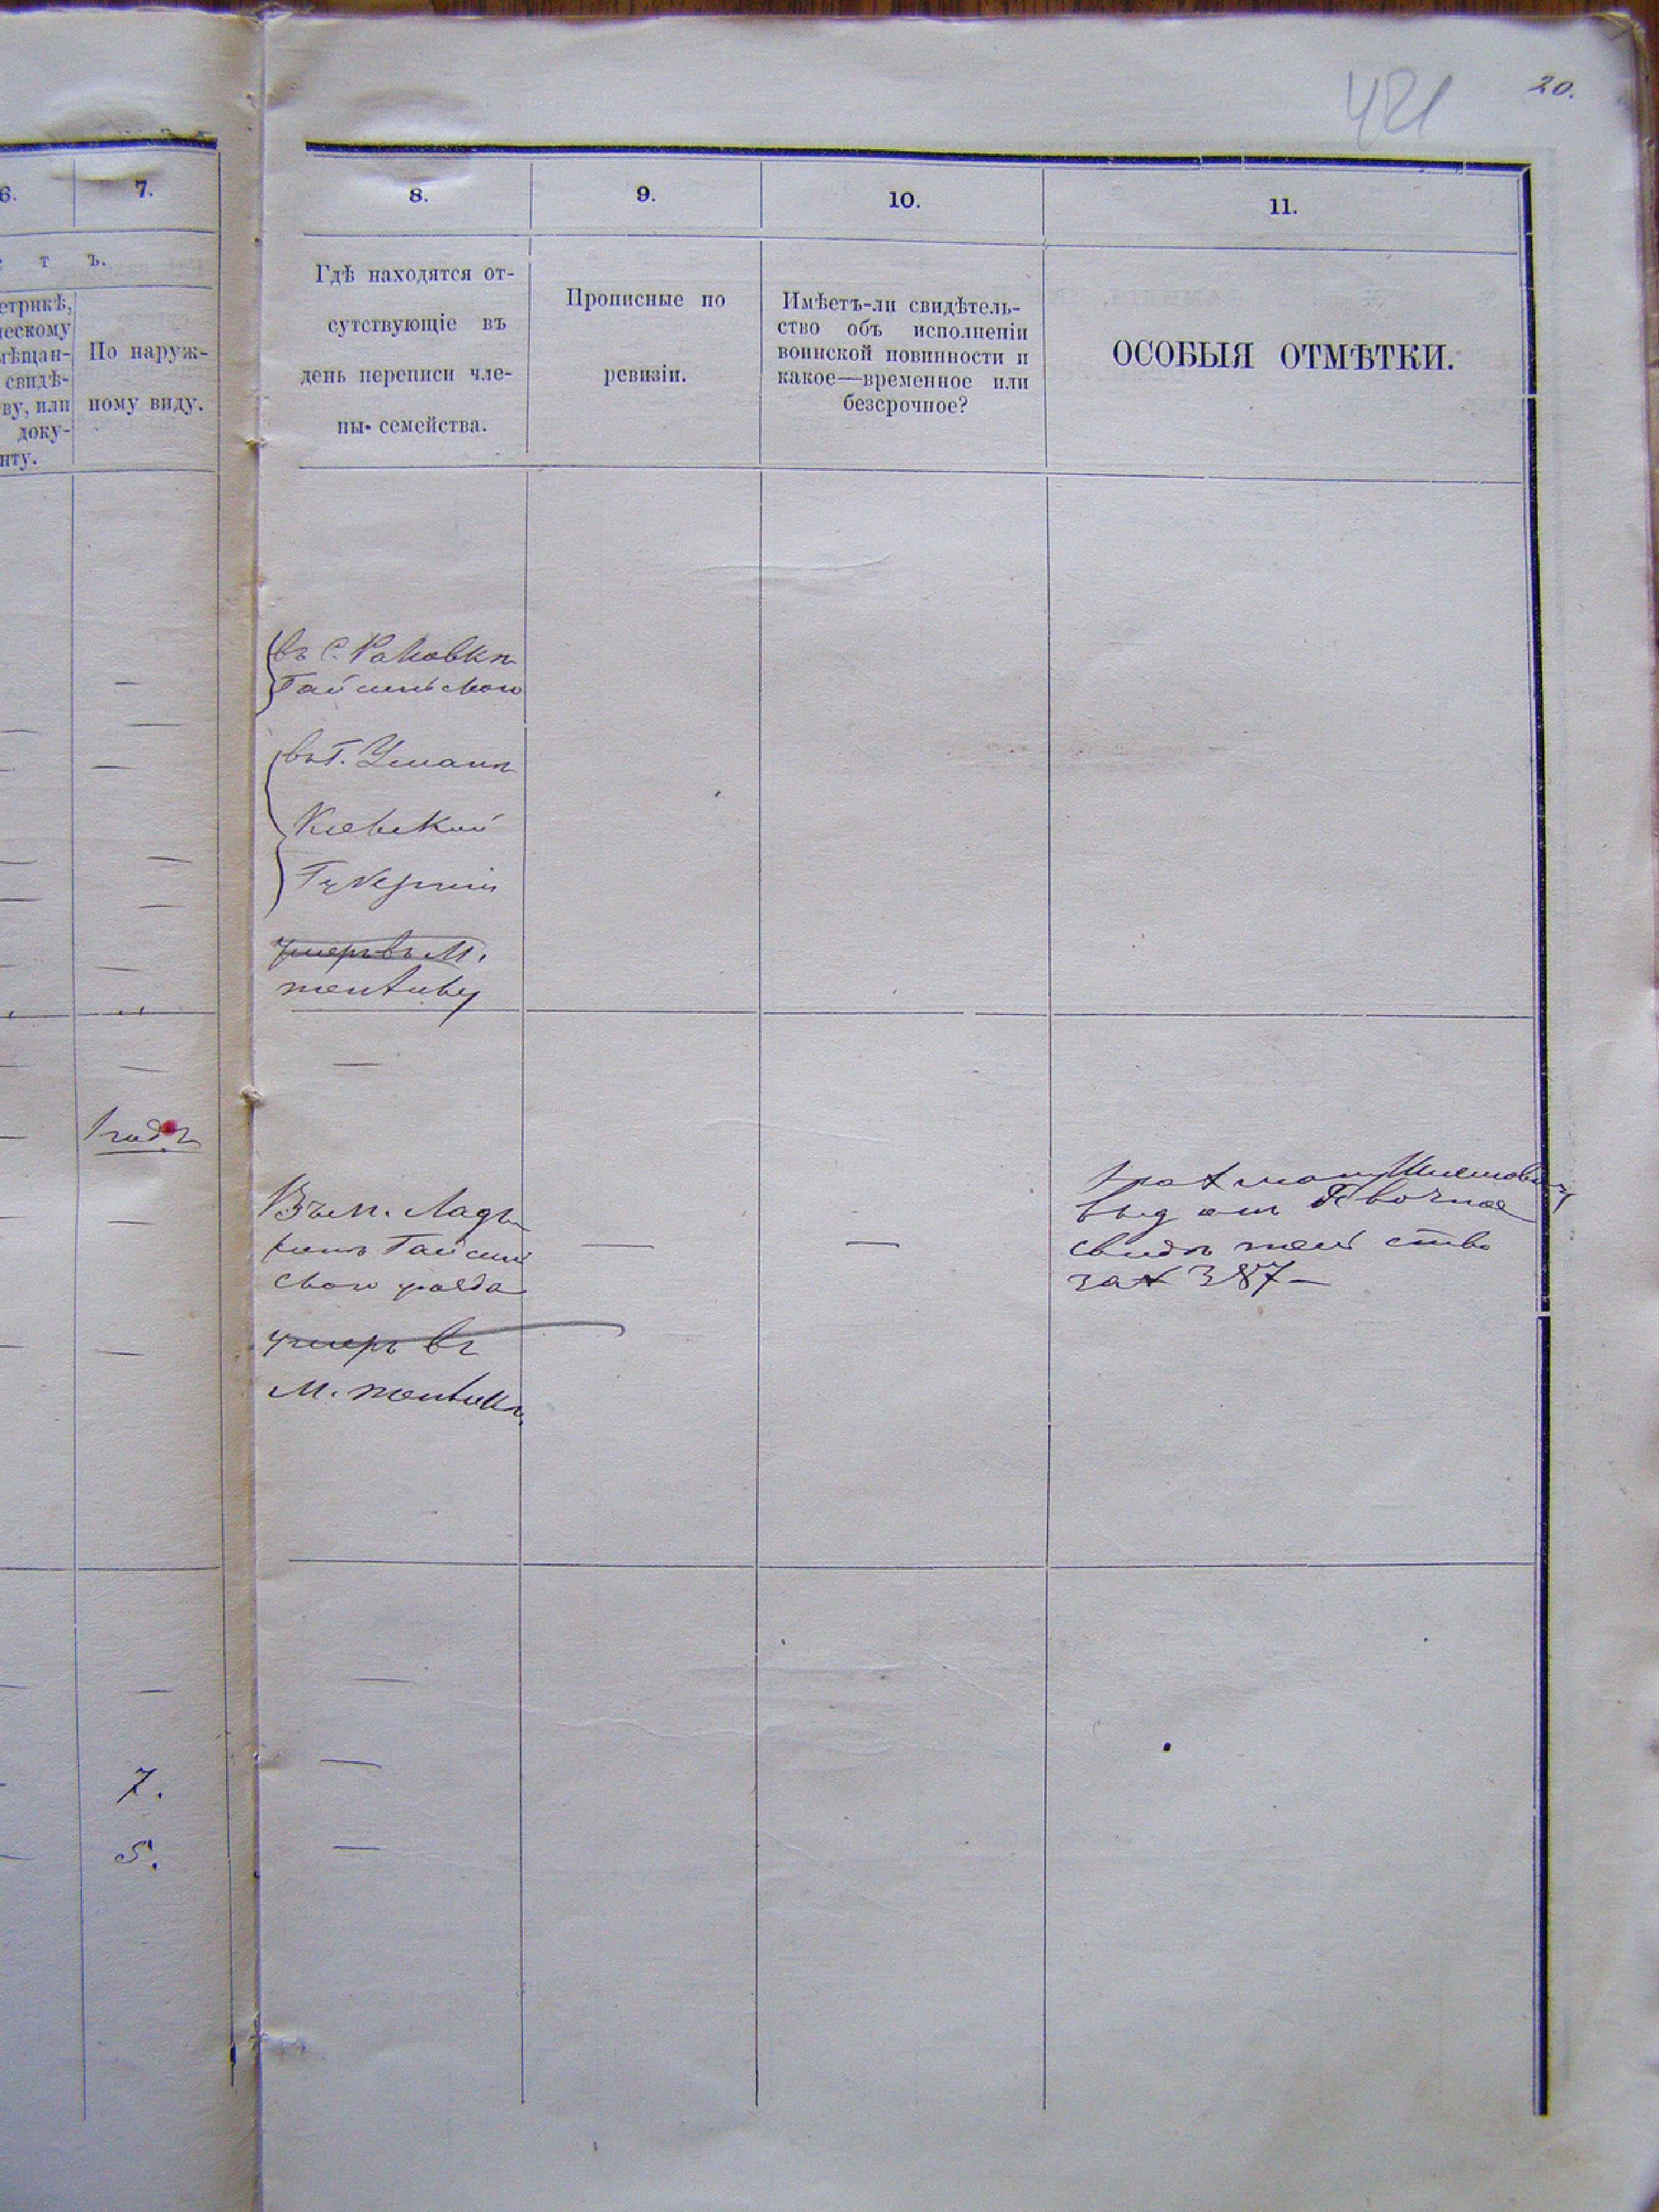 421
20.
6.
7.
8.
9.
10.
11.
т ъ.
етрикѣ,
ческому
мѣщан-
свидѣ-
ву, или
доку-
нту.
По наруж-
ному виду.
Гдѣ находятся от-
сутствующіе въ
день переписи чле-
ны семейства.
Прописные по
ревизіи.
Имѣетъ-ли свидѣтель-
ство объ исполненіи
воинской повинности и
какое—временное или
безсрочное?
ОСОБЫЯ ОТМѢТКИ.
въ С.
въ Г. Умани
Кіевской
Губерніи
умеръ въ М.
1 годъ
Въ м. Лады-
жинѣ Гайсин
ского уезда
умеръ въ
М.
свидѣтельство
за № 387
7.
5.